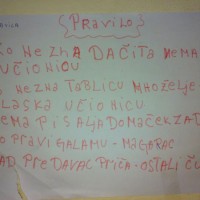 (PRAVILO)
NE ZNA DAČITA NEMA
UČIONICU
NE ZNA TABLICU MNOŽELJE
LASKA UČIONICU
NEMA PISALJA DOMAĆEK ZAD
PRAVI GALAMU - MAGARAC
PREDAVAC PRIČA - OSTALI ĆU